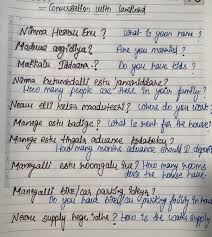 Conversation with landlord
Nimma Hesaru Enu? What is your name?
Maduve aagidiya? Are you married?
Makkalu Iddaara? Do you have kids?
Nimma kutumbdalli estu janaridddare?
How many people are there in your family?
Neevu elli kelsa maaduteeri? Where do you work?
Manege estu baadige? What is rent for the house?
Manege estu tingala advance kodabeku?
How many months advance should I deposit
Maneyalli estu roomgalu ive? How many rooms
does the house have.
Maneyalli bike/car parking ideya?
Do you have bike/car parking facility in house
Neeru supply hege idhe? How is the water supply